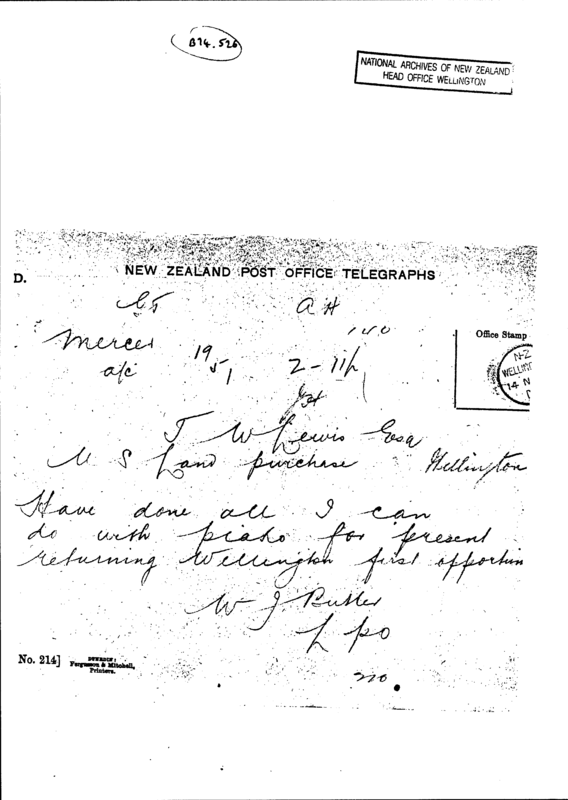 B14.526
NATIONAL ARCHIVES OF NEW ZEALAND
HEAD OFFICE WELLINGTON
D.
NEW ZEALAND POST OFFICE TELEGRAPHS
A H
Mercer
a/c
19
2-11p
Office Stamp
N-Z
WELLING
14 N
T W Lewis Esq
U S Land purchase Wellington
Have done all I can
do with piako for present
returning Wellington first opportun
W J Butler
L P O
No. 214]
DUNEDIN:
Fergusson & Mitchell,
Printers.